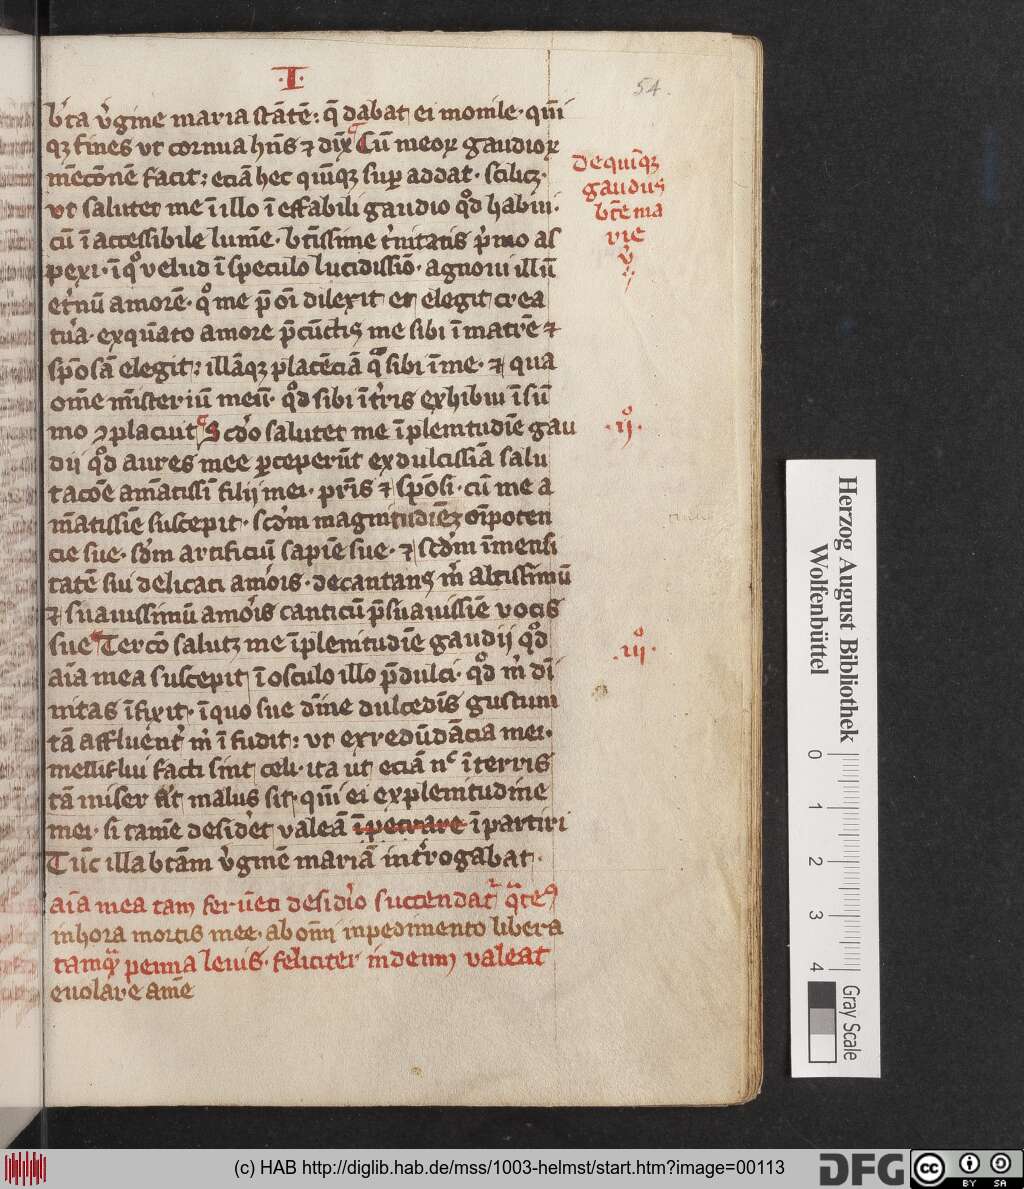 ·I·
54.
br̄ta v̄gine maria stātē: q̄ dabat ei monile· qui̅
qȝ fines ut cornua hn̅s ⁊ dix̅ Cū meoꝝ gaudioꝝ
mēcōnē facit; eciā hec quinqȝ suꝑ addat· scilicȝ·
ut salutet me ī illo ī effabili gaudio qd̊ habui·
cū ī accessibile lumē· btīssime tinitatis pimo as
pexi· ī qͦ velud ī speculo lucidissiō· agnoui illū
etnū amorē· qͦ me p̄ oī dilexit et elegit crea
tura· ex quāto amore p̄ cūctis me sibi ī matrē ⁊
spōsā elegit: illāqȝ placēciā qͣ sibi ī me· ⁊ qua
om̄e m̄isteriū meū· qd̊ sibi ī tris exhibui ī sū
mo ꝯplacuit Scdo salutet me ī plenitudīe gau
dii qd̊ aures mee ꝑceperūt ex dulcissīa salu
tacōe amātissī filij mei· pris ⁊ spōsi· cū me a
mātissīe suscepit· scdm magnitudīeȝ oīpoten
cie sue· scdm artificiū sapīe sue· ⁊ scdm īmensi
tatē sui delicati amois· decantans m̄ altissimū
⁊ suauissimū amois canticū p̄suauissīe vocis
sue Tercō salutȝ me īplenitudīe gaudij qd̊
aīa mea suscepit ī osculo illo p̄dulci· qd̊ m̄ dī
nitas ī fixit· ī quo sue dīne dulcedīs gustum
tā affluent m̄ ī fudit: ut ex redūdācia mei·
melliflui facti sint celi· ita ut eciā nͨ ī terris
tā miser aut malus sit· qui̅ ei ex plenitudine
mei· si tamē desidet valeā īpetrare ī partiri
Tūc illa btām v̄ginē mariā introgabat·
aīa mea tam feruēti desidio succendat qͣteꝰ
in hora mortis mee· ab omī inpedimento libera
tamqͣ penna leuis· feliciter in deum valeat
euolare amē
de quīqȝ
gaudiis
btē ma
rie
·ijͦ·
·iijͦ·
Herzog August Bibliothek
Wolfenbüttel
0 1 2 3 4
Gray Scale
(c) HAB http://diglib.hab.de/mss/1003-helmst/start.htm?image=00113
DFG
cc BY SA